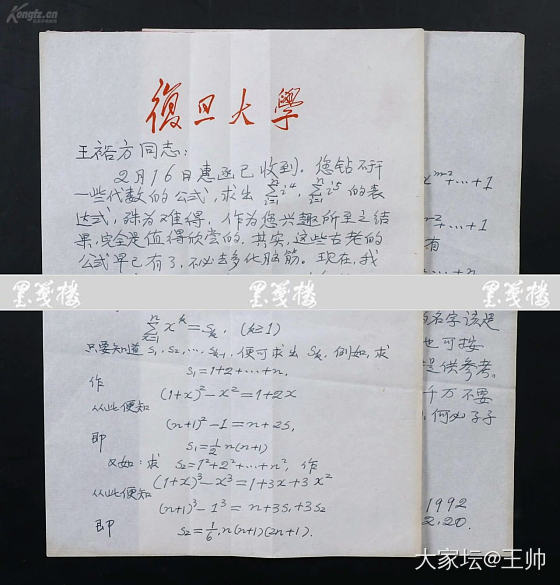 Kongfz.cn
復旦大學
王裕方同志:
2月16日惠函已收到. 您钻研于
一些代数的公式, 求出 \sum_{i=1}^{n} i^4, \sum_{i=1}^{n} i^5 的表
达式, 殊为难得, 作为您兴趣所至之结
果, 完全是值得欣赏的. 其实, 这些古老的
公式早已有了, 不必去多化脑筋. 现在, 我
黑笺楼 黑笺楼 黑笺楼
\sum_{x=1}^{n} x^k = s_k, (k≥1)
只要知道 s_1, s_2, … s_{k-1}, 便可求出 s_k. 例如, 求
s_1=1+2+…+n,
作
(1+x)^2-x^2=1+2x
从此便知
(n+1)^2-1=n+2s_1
即
s_1=\frac{1}{2}n(n+1)
又如: 求 s_2=1^2+2^2+…+n^2, 作
(1+x)^3-x^3=1+3x+3x^2
从此便知
(n+1)^3-1^3=n+3s_1+3s_2
即
s_2=\frac{1}{6}n(n+1)(2n+1).
+…+1
+…+1
有
名字该是
也可按
提供参考.
千万不要
何必孑孑
1992
2.20.
大家坛@王帅